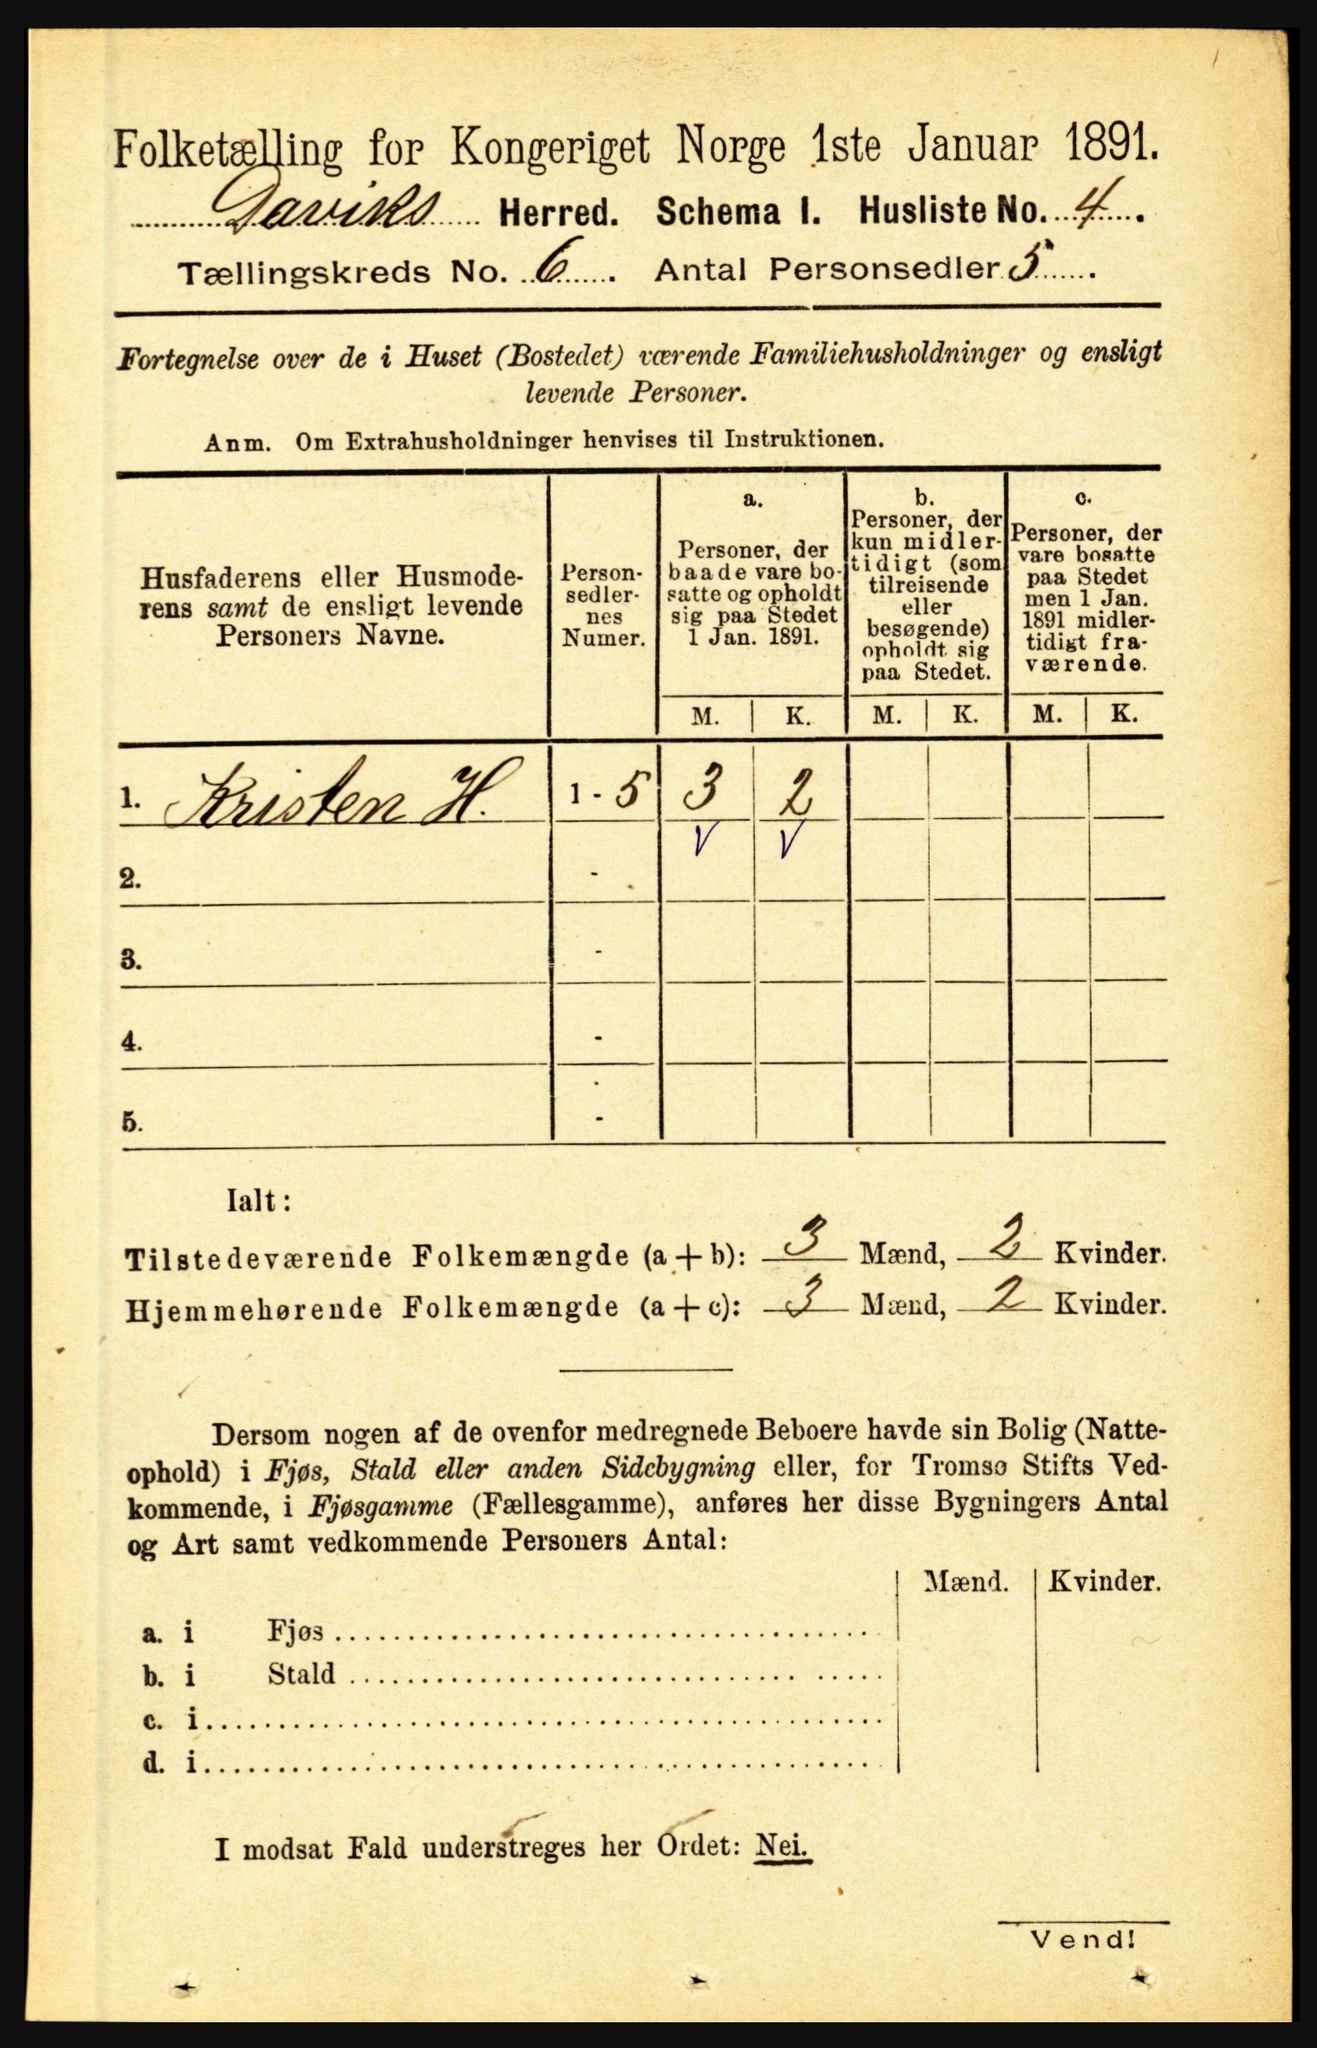 Folketælling for Kongeriget Norge 1ste Januar 1891.
Daviks Herred. Schema I. Husliste No. 4.
Tællingskreds No. 6. Antal Personsedler 5.
Fortegnelse over de i Huset (Bostedet) værende Familiehusholdninger og ensligt
levende Personer.
Anm. Om Extrahusholdninger henvises til Instruktionen.
Husfaderens eller Husmode-
rens samt de ensligt levende
Personers Navne.
Person-
sedler-
nes
Numer.
a.
Personer, der
baade vare bo-
satte og opholdt
sig paa Stedet
1 Jan. 1891.
b.
Personer, der
kun midler-
tidigt (som
tilreisende
eller
besøgende)
opholdt sig
paa Stedet.
c.
Personer, der
vare bosatte
paa Stedet
men 1 Jan.
1891 midler-
tidigt fra-
værende.
M. K. M. K. M. K.
1. Kristen H. 1 - 5 3 2
V V
2. -
3. -
4. -
5. -
Ialt:
Tilstedeværende Folkemængde (a + b): 3 Mænd, 2 Kvinder.
Hjemmehørende Folkemængde (a + c): 3 Mænd, 2 Kvinder.
Dersom nogen af de ovenfor medregnede Beboere havde sin Bolig (Natte-
ophold) i Fjøs, Stald eller anden Sidebygning eller, for Tromsø Stifts Ved-
kommende, i Fjøsgamme (Fællesgamme), anføres her disse Bygningers Antal
og Art samt vedkommende Personers Antal:
Mænd. Kvinder.
a. i Fjøs
b. i Stald
c. i
d. i
I modsat Fald understreges her Ordet: Nei.
Vend!